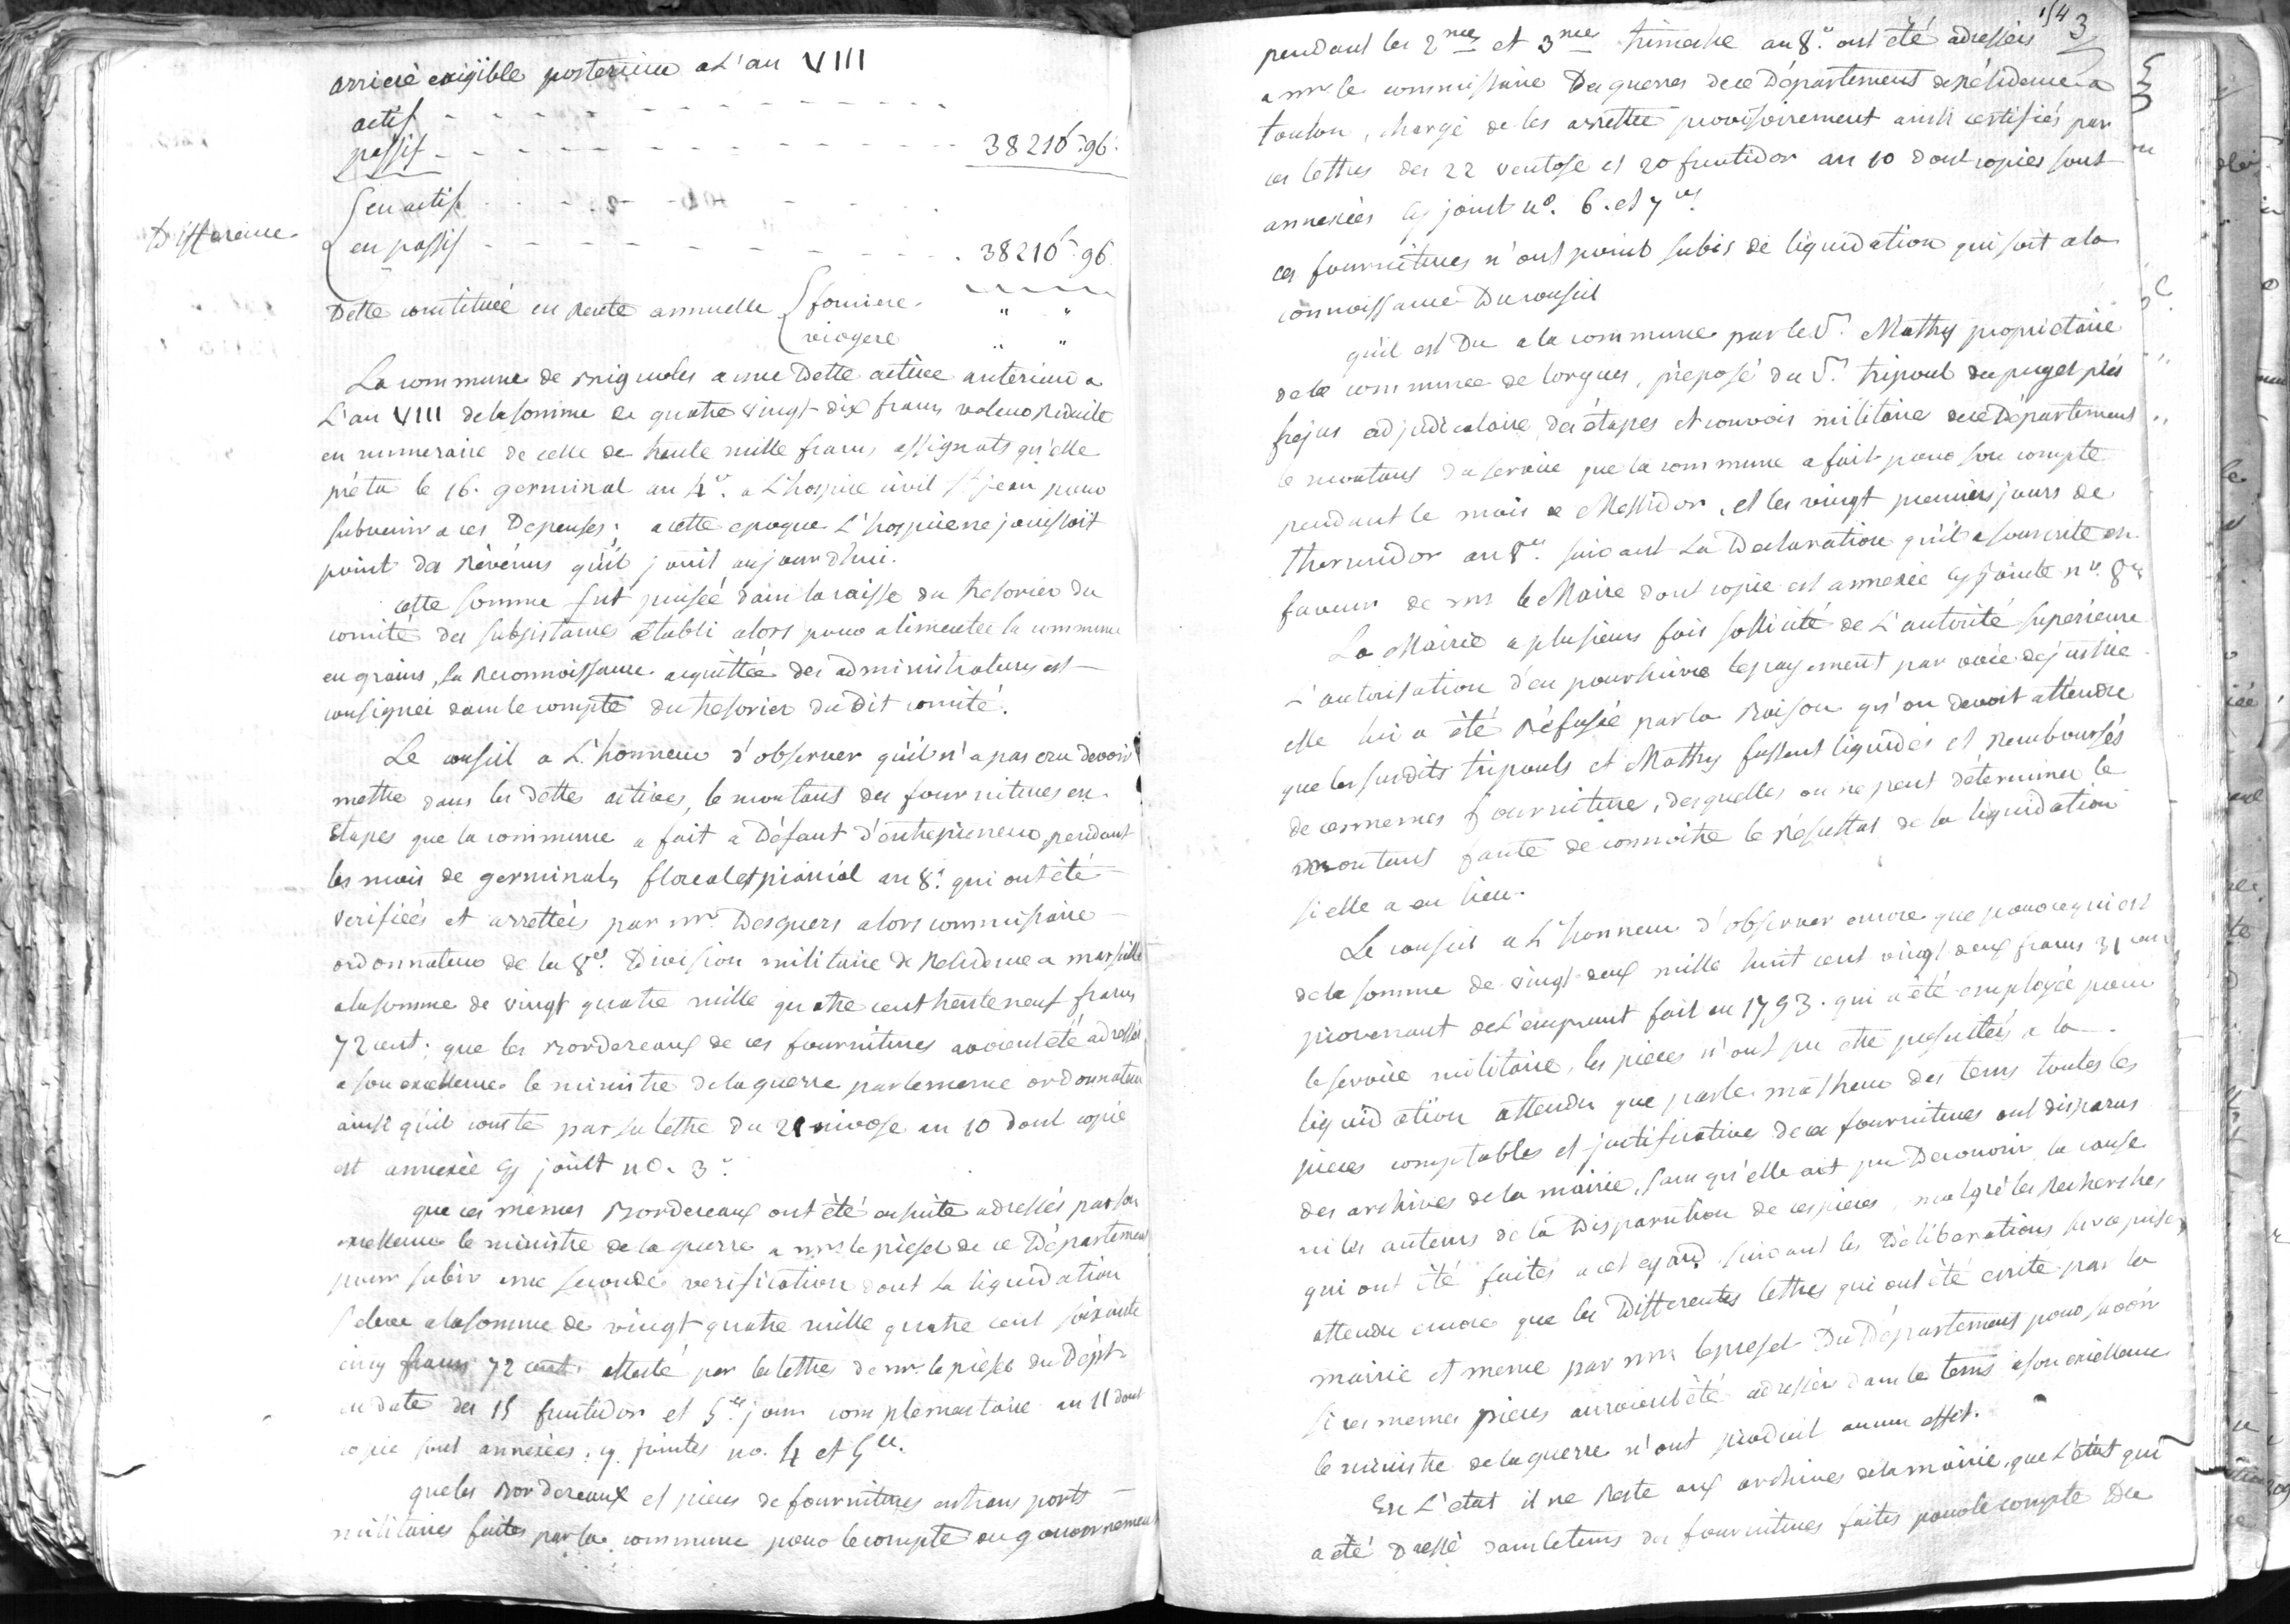 arrieré exigible posterieur a L'an VIII
actif - - - - - - - - - - -
passif - - - - - - - - - - - 38216f. 96c.
Difference
en actif - - - - - -
en passif - - - - - - - - - 38216f. 96
Dette constituée en Rente annuelle fonciere. " "
viagere " "
La commune de Brignoles a une Dette active anterieure a
L'an VIII de la somme de quatre vingt-dix francs valeur Réduite
en numeraire de celle de trente mille francs assignats qu'elle
prêta le 16. germinal an 4e. a L'hospice civil St. jean pour
subvenir a ces Depenses; a cette epoque L'hospice ne jouissoit
point des Révénus qu'il jouit aujourdhui.
cette somme fut puisée dans la caisse du tresorier du
comité des subsistances établi alors pour alimenter la commune
en grains, la Reconnoissance acquittée des administrateurs est
consignée dans le compte du tresorier du Dit comité.
Le conseil a L'honneur d'observer qu'il n'a pas cru devoir
mettre dans les dettes actives, le montant des fournitures en
étapes que la commune a fait a Défaut d'entrepreneur, pendant
les mois de germinal, floreal et prairial an 8e. qui ont été
verifiées et arrettées par mr. Desquers alors commissaire
ordonnateur de la 8e. Division militaire de Residence a marseille
a la somme de vingt quatre mille quatre cent trente neuf francs
72 cent; que les Bordereaux de ces fournitures avoient été adressés
a son excellence le ministre de la guerre par le meme ordonnateur
ainsi qu'il conste par sa lettre du 21 nivose an 10 dont copie
est annexée cy joint no. 3e.
que ces mêmes Bordereaux ont été ensuite adressés par son
excellence le ministre de la guerre a mr. le prefet de ce Département
pour subir une seconde verification dont la liquidation
s'eleve a la somme de vingt-quatre mille quatre cent soixante
cinq francs 72 cent. attesté par les lettres de mr. le prefet du Dépt.
en date des 15 fructidor et 5e. jour complementaire an 11 dont
copie sont annexées cy jointes no. 4 et 5e.
que les Bordereaux et pieces de fournitures en transports
militaires faites par la commune pour le compte du gouvernement
154 3
pendant les 2mes et 3mes trimestre an 8e. ont été adressées
a mr. le commissaire Des guerres de ce Département de Résidence a
toulon, chargé de les arretter provisoirement ainsi certifiés par
ces lettres des 22 ventose et 20 fructidor an 10 dont copies sont
annexées cy joint no. 6. et 7e.
ces fournitures n'ont point subis de liquidation qui soit a la
connoissance Du conseil
qu'il est Du a la commune par le Sr. Mathy proprietaire
de la commune de lorgues, préposé du Sr. tripoul du puget prés
frejus adjudicataire des étapes et convois militaire de ce Département
le montant du service que la commune a fait pour son compte
pendant le mois de Messidor, et les vingt premiers jours de
thermidor an 8e. suivant La Declaration qu'il a souscrite en
faveur de mr le Maire dont copie est annexée cy jointe no. 8e
La Mairie a plusieurs fois sollicité de L'autorité superieure
L'autorisation d'en poursuivre le payement par voie de justice
elle lui a été Réfusée par la Raison qu'on devoit attendre
que les susdits tripouls et Mathy fussent liquidés et Remboursés
de ces memes fourniture, desquelles on ne peut déterminer le
montant faute de connoitre le Résultat de la liquidation
si elle a eu lieu.
Le conseil a L'honneur d'observer encore que pour ce qui est
de la somme de vingt-deux mille huit cent vingt deux francs 31 cen
provenant de L'emprunt fait en 1793. qui a été employée pour
le service militaire, les pieces n'ont pu etre presentées a la
liquidation attendu que par le malheur des tems toutes les
pieces comptables et justificatives de ces fournitures ont disparus
des archives de la mairie, sans qu'elle ait pu Decouvrir la cause
ni les auteurs de la Disparution de ces pieces, malgré les Recherches
qui ont été faites a cet egard suivant les Déliberations sur ce prises,
attendu encore que les Differentes lettres qui ont été ecrite par la
mairie et meme par mr le prefet Du Département pour savoir
si ces memes pieces auroient été adressées dans le tems a son excellence
le ministre de la guerre n'ont produit aucun effet.
En L'etat il ne Reste aux archives de la mairie, que L'état qui
a été Dressé dans le tems des fournitures faites pour le compte Du